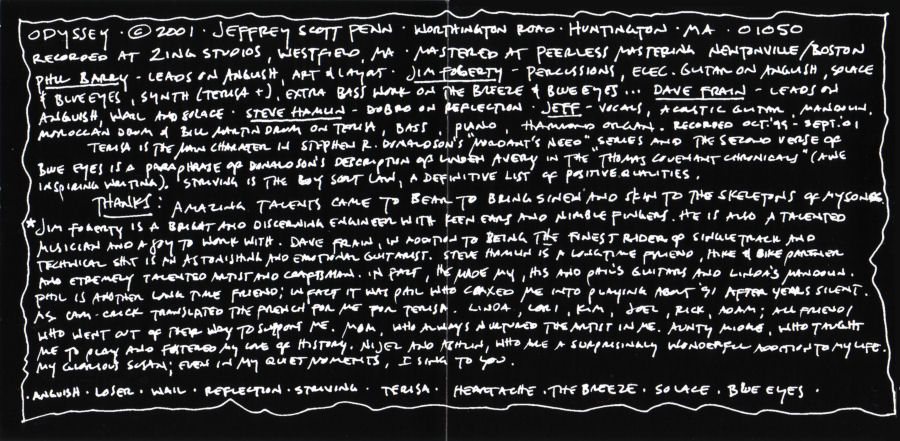 ODYSSEY · © 2001 · JEFFREY SCOTT PENN · WORTHINGTON ROAD · HUNTINGTON · MA · 01050
RECORDED AT ZING STUDIOS, WESTFIELD, MA · MASTERED AT PEERLESS MASTERING NEWTONVILLE/BOSTON
PHIL BARRY - LEADS ON ANGUISH, ART & LAYOUT · JIM FOGERTY - PERCUSSIONS, ELEC. GUITAR ON ANGUISH, SOLACE
& BLUE EYES, SYNTH (TERISA +), EXTRA BASS WORK ON THE BREEZE & BLUE EYES... DAVE FRAIN - LEADS ON
ANGUISH, WAIL AND SOLACE · STEVE HAMLIN - DOBRO ON REFLECTION · JEFF - VOCALS, ACOUSTIC GUITAR, MANDOLIN,
MOROCCAN DRUM & BILL MARTIN DRUM ON TERISA, BASS, PIANO, HAMMOND ORGAN. RECORDED OCT. '95 - SEPT. '01
TERISA IS THE MAIN CHARATER IN STEPHEN R. DONALDSON'S "MORDANT'S NEED" SERIES AND THE SECOND VERSE OF
BLUE EYES IS A PARAPHRASE OF DONALDSON'S DESCRIPTION OF LINDEN AVERY IN THE "THOMAS COVENANT CHRONICALS" (AWE
INSPIRING WRITING). STRIVING IS THE BOY SCOUT LAW, A DEFINITIVE LIST OF POSITIVE QUALITIES.
THANKS: AMAZING TALENTS CAME TO BEAR TO BRING SINEW AND SKIN TO THE SKELETONS OF MY SONGS.
* JIM FOGERTY IS A BRIGHT AND DISCERNING ENGINEER WITH KEEN EARS AND NIMBLE FINGERS. HE IS ALSO A TALENTED
MUSICIAN AND A JOY TO WORK WITH. DAVE FRAIN, IN ADDITION TO BEING THE FINEST RIDER OF SINGLETRACK AND
TECHNICAL SHIT IS AN ASTONISHING AND EMOTIONAL GUITARIST. STEVE HAMLIN IS A LONGTIME FRIEND, HIKE & BIKE PARTNER
AND ETREMELY TALENTED ARTIST AND CRAFTSMAN. IN FACT, HE MADE MY, HIS AND PHIL'S GUITARS AND LINDA'S MANDOLIN.
PHIL IS ANOTHER LONG TIME FRIEND; IN FACT IT WAS PHIL WHO COAXED ME INTO PLAYING ABOUT '91 AFTER YEARS SILENT.
TRANSLATED THE FRENCH FOR ME FOR TERISA. LINDA, LORI, KIM, JOEL, RICK, ADAM; ALL FRIENDS
WHO WENT OUT OF THEIR WAY TO SUPPORT ME. MOM, WHO ALWAYS NURTURED THE ARTIST IN ME. AUNTY WHO TAUGHT
ME TO PLAY AND FOSTERED MY LOVE OF HISTORY. NIJEL AND ASHLIN, WHO ARE A SURPRISINGLY WONDERFUL ADDITION TO MY LIFE.
MY GLORIOUS SUSAN; EVEN IN MY QUIET MOMENTS, I SING TO YOU.
· ANGUISH · LOSER · WAIL · REFLECTION · STRIVING · TERISA · HEARTACHE · THE BREEZE · SOLACE · BLUE EYES ·